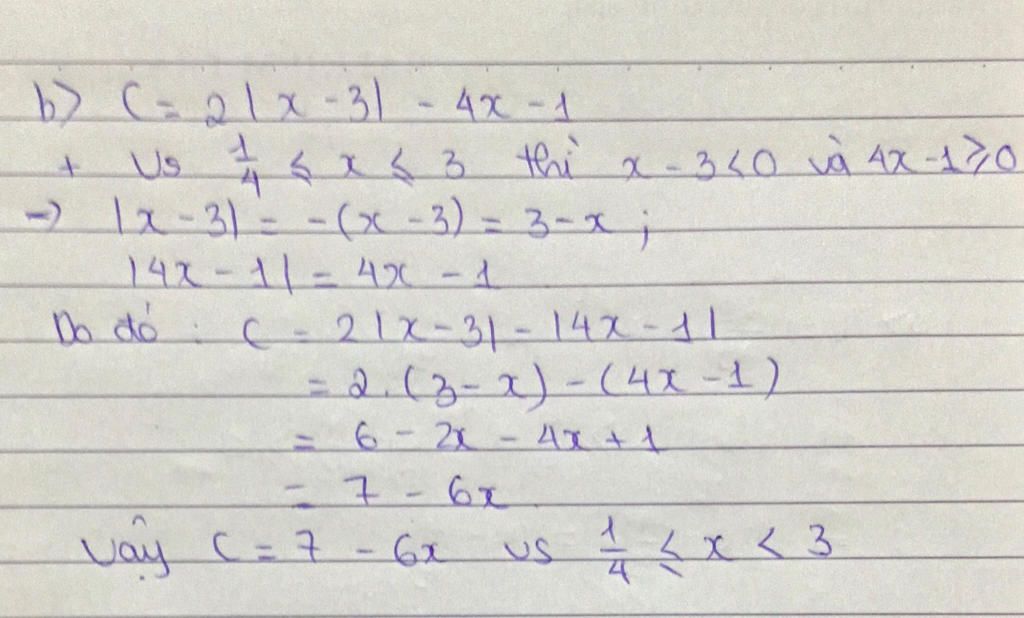 b) C = 2|x - 3| - 4x - 1
+ Vs 1/4 ≤ x ≤ 3 thì x - 3 < 0 và 4x - 1 ≥ 0
→ |x - 3| = -(x - 3) = 3 - x ;
|4x - 1| = 4x - 1
Do đó : C = 2|x - 3| - |4x - 1|
= 2.(3 - x) - (4x - 1)
= 6 - 2x - 4x + 1
= 7 - 6x
Vậy C = 7 - 6x vs 1/4 ≤ x < 3